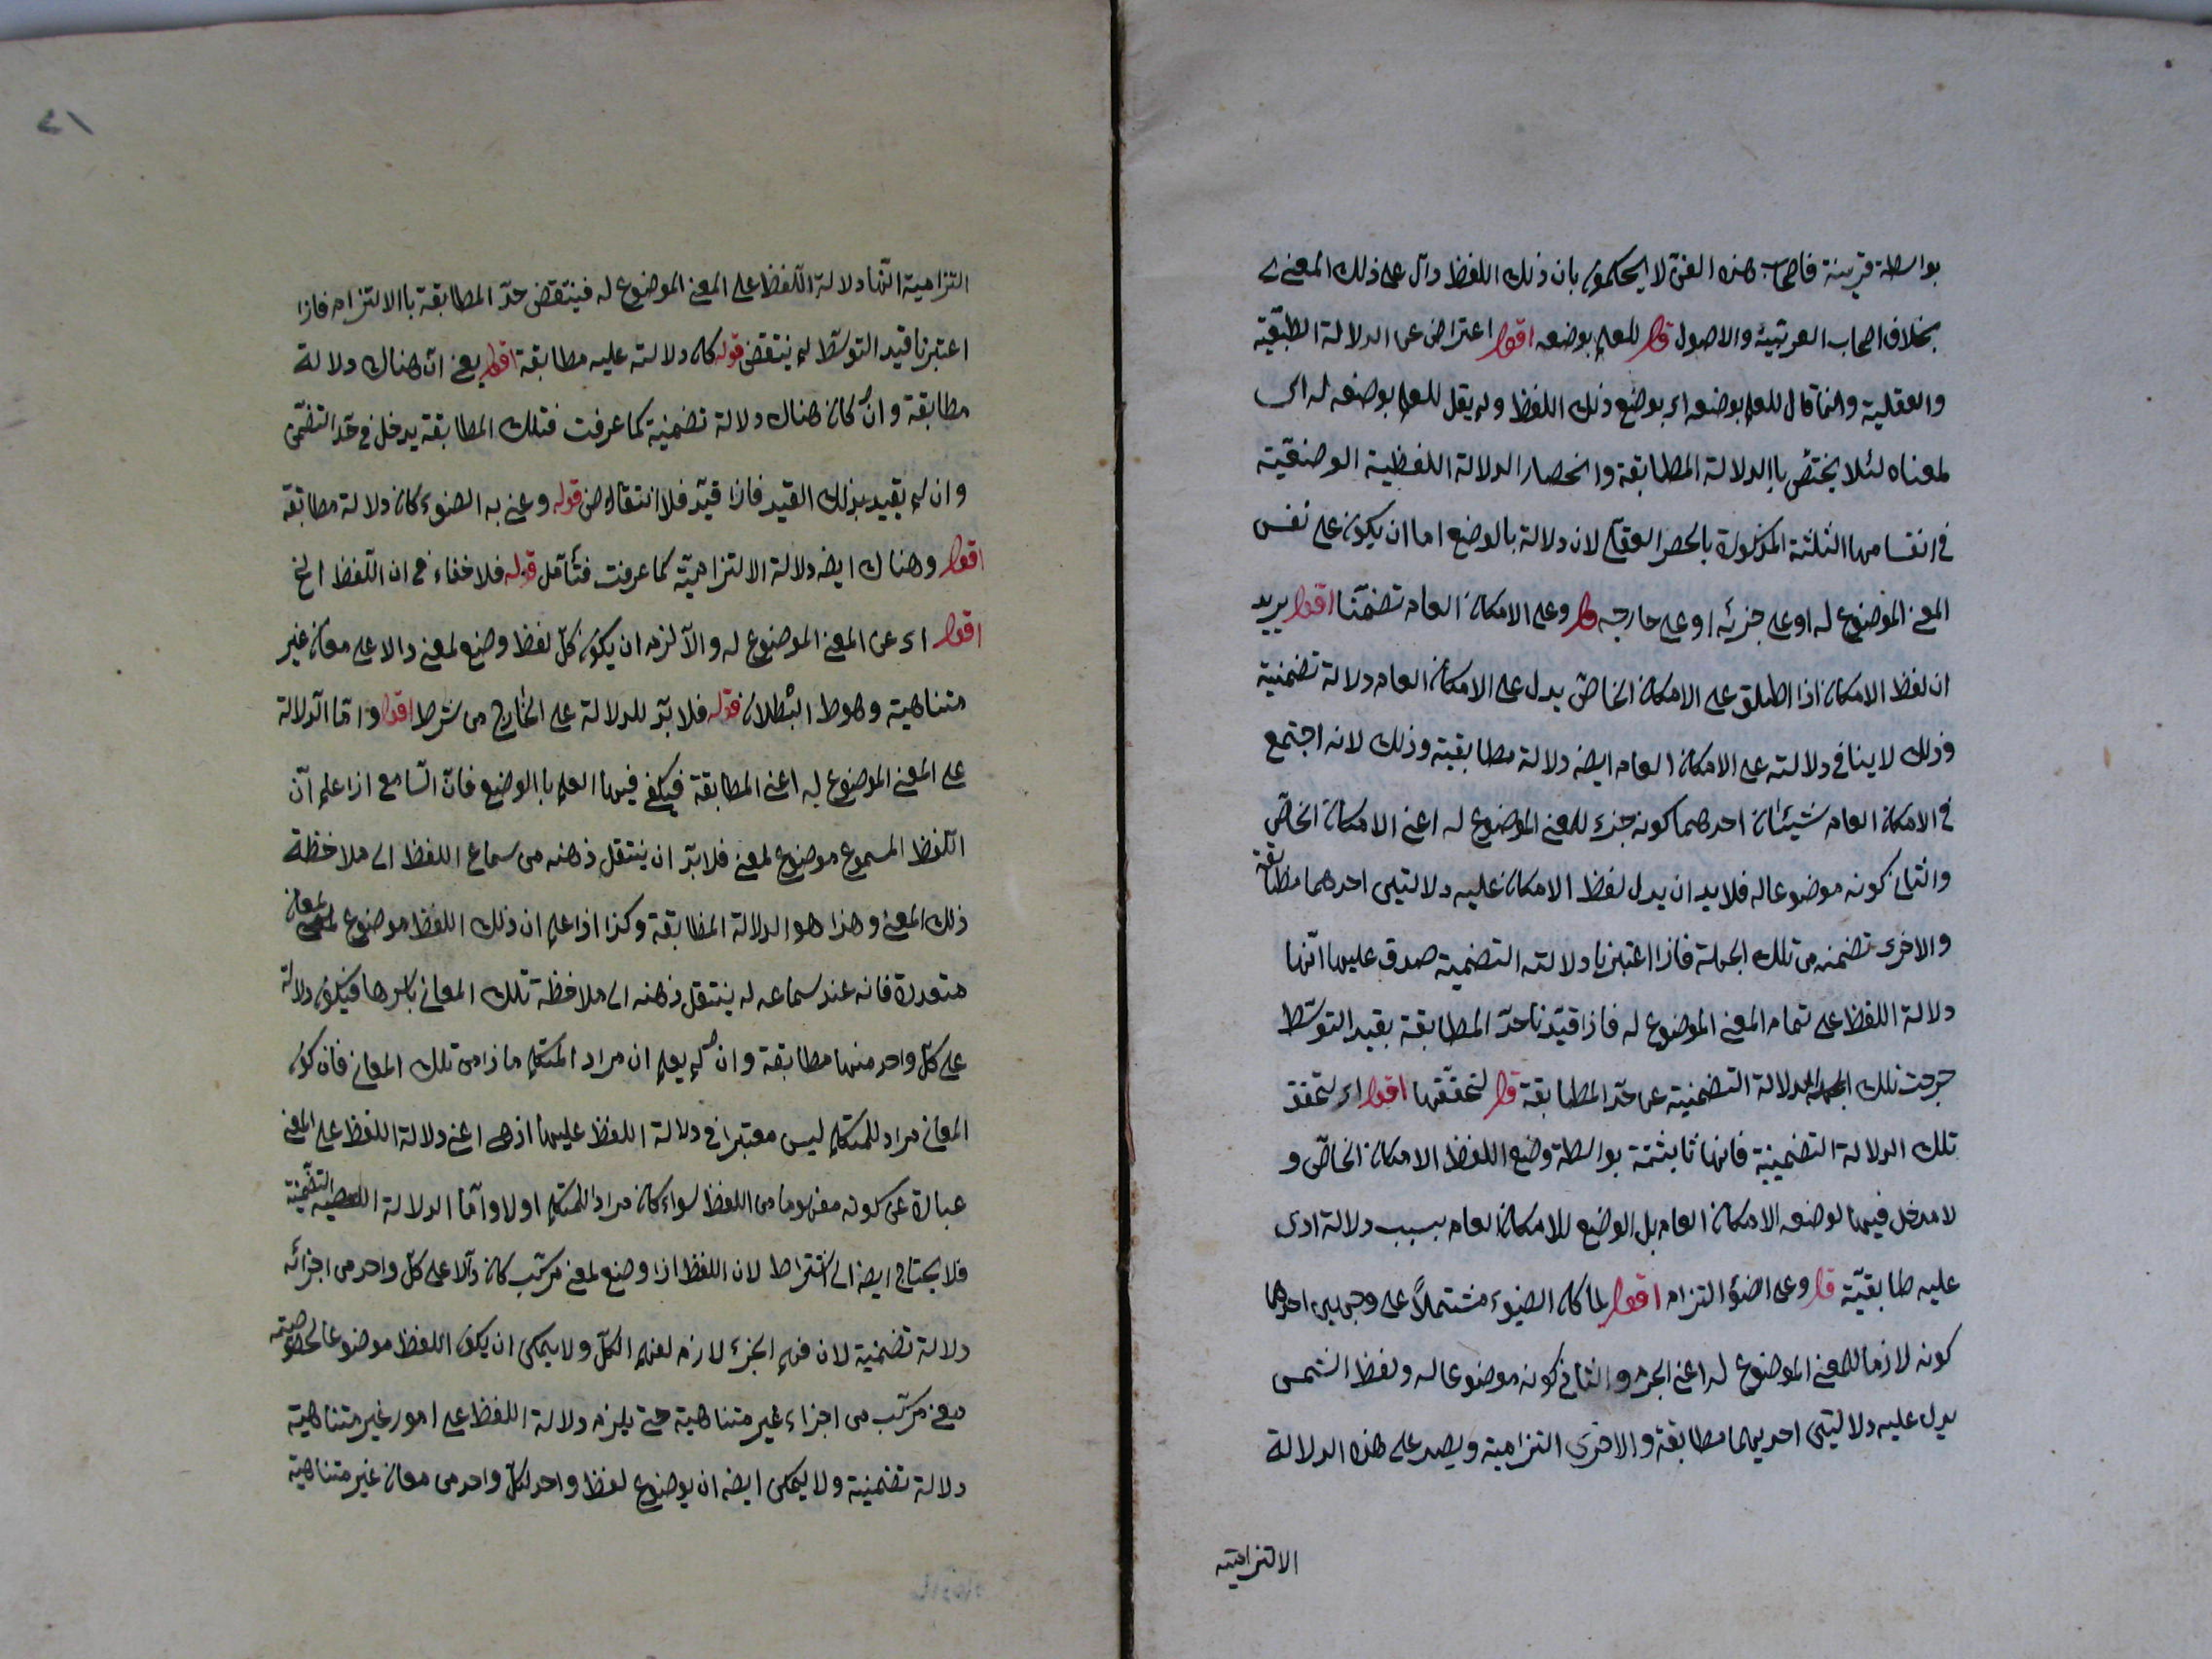 بواسطة قرينة فاصحاب هذه الفن لا يحكمون بان ذلك اللفظ دال على ذلك المعنى
بخلاف اصحاب العربيّة والاصول قال للعلم بوضعه اقول اعتراض عن الدلالة الطبيعيّة
والعقلية وانما قال للعلم بوضعه اى بوضع ذلك اللفظ ولم يقل للعلم بوضعه له اى
لمعناه لئلا يختصّ باالدلالة المطابقة وانحصار الدلالة اللفظية الوضعيّة
فى انقسامها الثلثة المذكورة بالحصر العقلى لان دلالة بالوضع اما ان يكون على نفس
المعنى الموضوع له او على جزئه او على خارجه قال وعلى الامكان العام تضمّنا اقول يريد
ان لفظ الامكان اذا اطلق على الامكان الخاصّ يدل على الامكان العام دلالة تضمنية
وذلك لاينافى دلالته على الامكان العام ايضه دلالة مطابقية وذلك لانه اجتمع
فى الامكان العام شيئان احدهما كونه جزء للمعنى الموضوع له اعنى الامكان الخاصّ
والثانى كونه موضوعا له فلابد ان يدل لفظ الامكان عليه دلالتين احدهما مطابقة
والاخرى تضمنه من تلك الجهلة فاذا اعتبرنا دلالته التضمنية صدق عليها انّها
دلالة اللفظ على تمام المعنى الموضوع له فاذا قيّدنا حدّ المطابقة بقيد التوسّط
خرجت تلك الدلالة التضمنية عن حدّ المطابقة قال لتحقّقها اقول اى لتحقق
تلك الدلالة التضمينية فانها ثابثتة بواسطة وضع اللفظ الامكان الخاصّ و
لا مدخل فيها لوضعه الامكان العام بل الوضع للامكان العام بسبب دلالة اخرى
عليه طابقيّة قال وعلى الضؤ التزام اقول لما كان الضوء مشتملاً على وجهين احدهما
كونه لازما للمعنى الموضوع له اعنى الجرم والثانى كونه موضوعا له ولفظ الشمس
يدل عليه دلالتين احديهما مطابقة والاخرى التزامية ويصد على هذه الدلالة
الالتزاميّة
٤١
التزامية انّها دلالة اللّفظ على المعنى الموضوع له فينتقض حدّ المطابقة باالالتزام فاذا
اعتبرنا قيد التوسّط لم ينتقض قوله كان دلالته عليه مطابقة اقول يعنى انّ هناك دلالة
مطابقة وان كان هناك دلالة تضمنية كما عرفت فتلك المطابقة يدخل فى حدّ التضمّن
وان لم يقيد بذلك القيد فاذا قيّد فلا انتقاض قوله وعنى به الضوء كان دلالة مطابقة
اقول وهناك ايضه دلالة الالتزاميّة كما عرفت فتأمّل قوله فلاخفاء فى ان اللّفظ الخ
اقول اى عن المعنى الموضوع له والّا لزم ان يكون كلّ لفظ وضع لمعنى دالا على معان غير
متناهية وهوط البطلان قوله فلابدّ للدلالة على الخارج من شرط اقول وامّا الدّلالة
على المعنى الموضوع له اعنى المطابقة فيكفى فيها العلم باالوضع فانّ السّامع اذا علم انّ
اللّفظ المسموع موضوع لمعنى فلابدّ ان ينتقل ذهنه من سماع اللفظ الى ملاحظة
ذلك المعنى وهذا هو الدلالة المطابقة وكذا اذا علم ان ذلك اللفظ موضوع لمعان
متعددة فانه عند سماعه له ينتقل ذهنه الى ملاحظة تلك المعانى باسرها فيكون دلالة
على كلّ واحد منها مطابقة وان لم يعلم ان مراد المتكلم ماذا من تلك المعانى فان كون
المعانى مراد للمتكلم ليس معتبرا فى دلالة اللفظ عليها اذهى اعنى دلالة اللفظ على المعنى
عبارة عن كونه مفهوما من اللفظ سواء كان مراد للمتكلم اولا وامّا الدلالة التضمّنية
فلا يحتاج ايضه الى اشتراط لان اللفظ اذا وضع لمعنى مركّب كان دالّا على كلّ واحد من اجزائه
دلالة تضمنية لان فهم الجزء لازم لفهم الكلّ ولا يمكن ان يكون اللفظ موضوعا لخصوصيته
معنى مركّب من اجزاء غير متناهية حتى يلزم دلالة اللفظ على امور غير متناهية
دلالة تضمنية ولا يمكن ايضه ان يوضوع لفظ واحد لكلّ واحد من معان غير متناهية